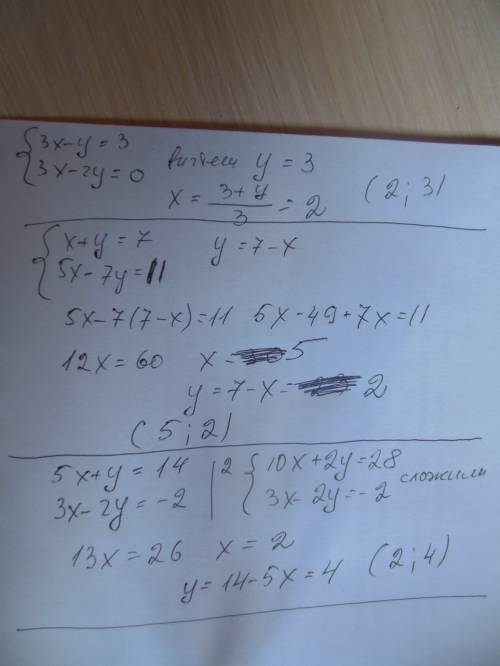 3x-y=3
3x-2y=0 вычтем y=3
x = (3+y)/3 = 2 (2; 3)
x+y=7 y=7-x
5x-7y=11
5x-7(7-x)=11 5x-49+7x=11
12x=60 x= 5
y=7-x= 2
(5; 2)
5x+y=14 |2 10x+2y=28
3x-2y=-2 3x-2y=-2 сложили
13x=26 x=2
y=14-5x=4 (2; 4)